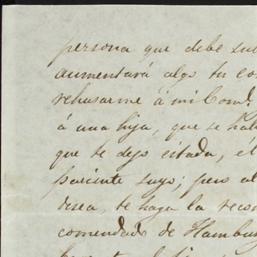 persona que debe sal
aumentará algo tu co
rehusarme á mi Comd.
á una hija, que se hal
que te dejo citada, el
pariente suyo; pero al
desea, te haga la reco
comendado de Hambur